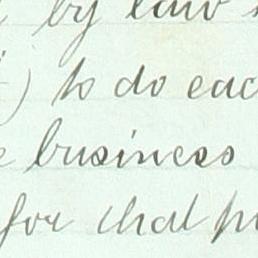 by law
) to do eac
business
for that p